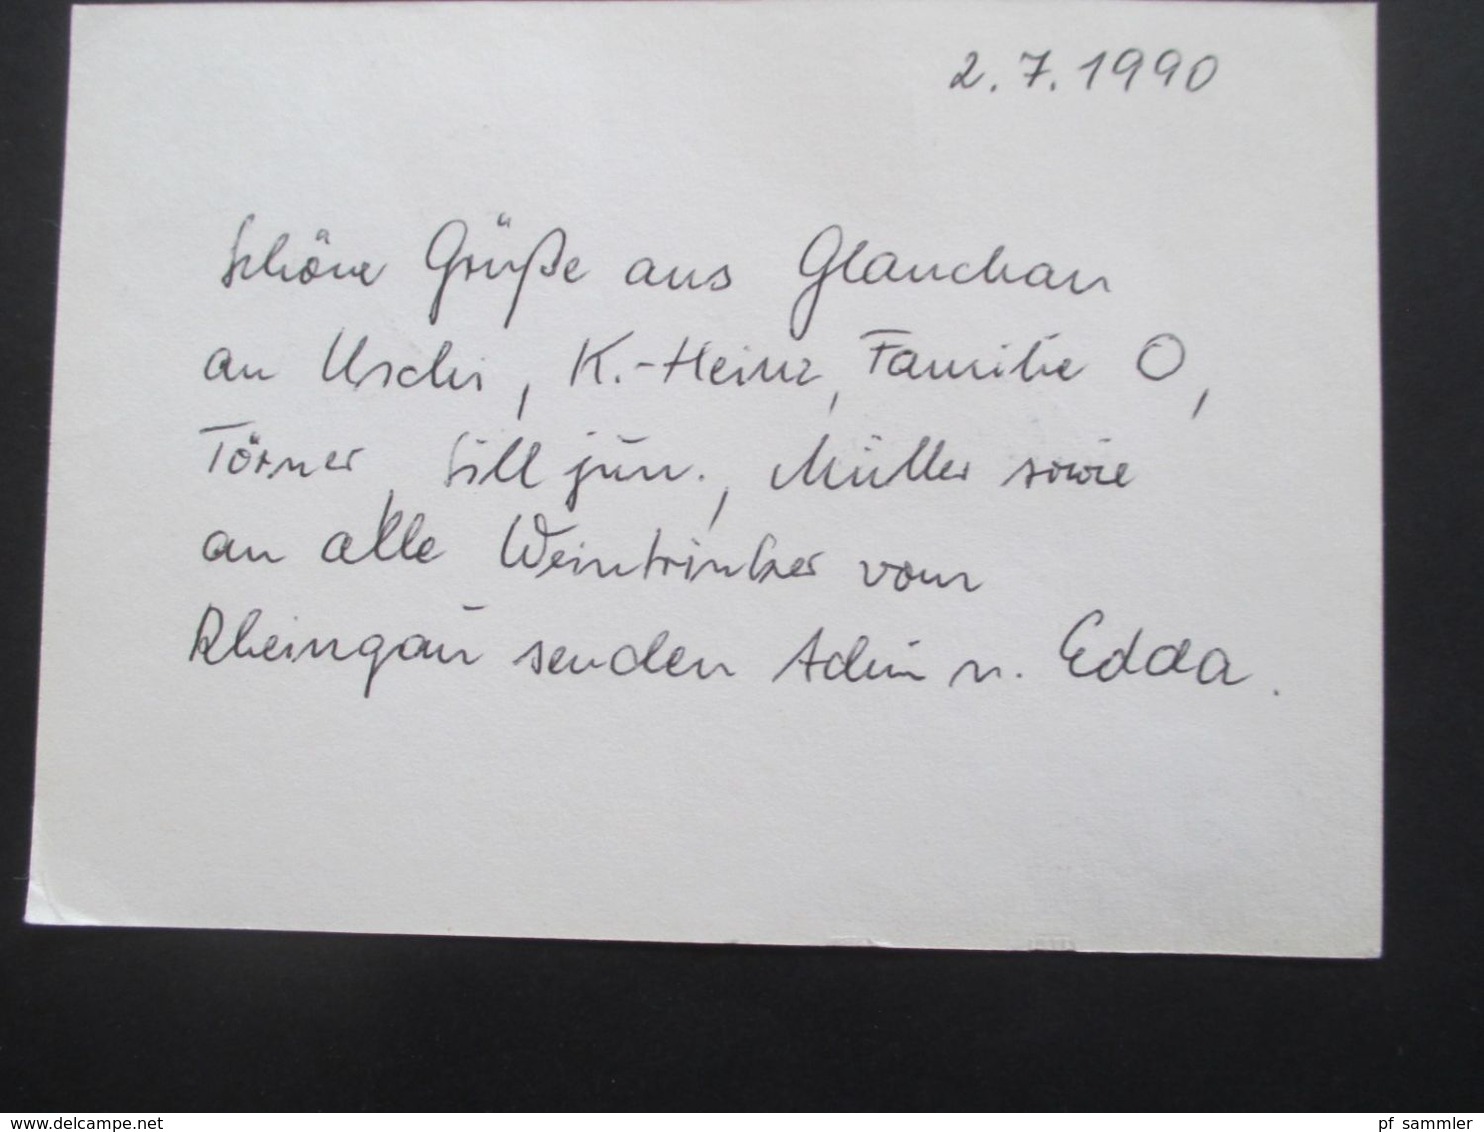 2.7.1990
Schöne Grüße aus Glauchau
an Uschi, K.-Heinz, Familie O,
Törner, Sill jun., Müller sowie
an alle Weintrinker vom
Rheingau senden Achim u. Edda.
www.delcampe.net
pf_sammler